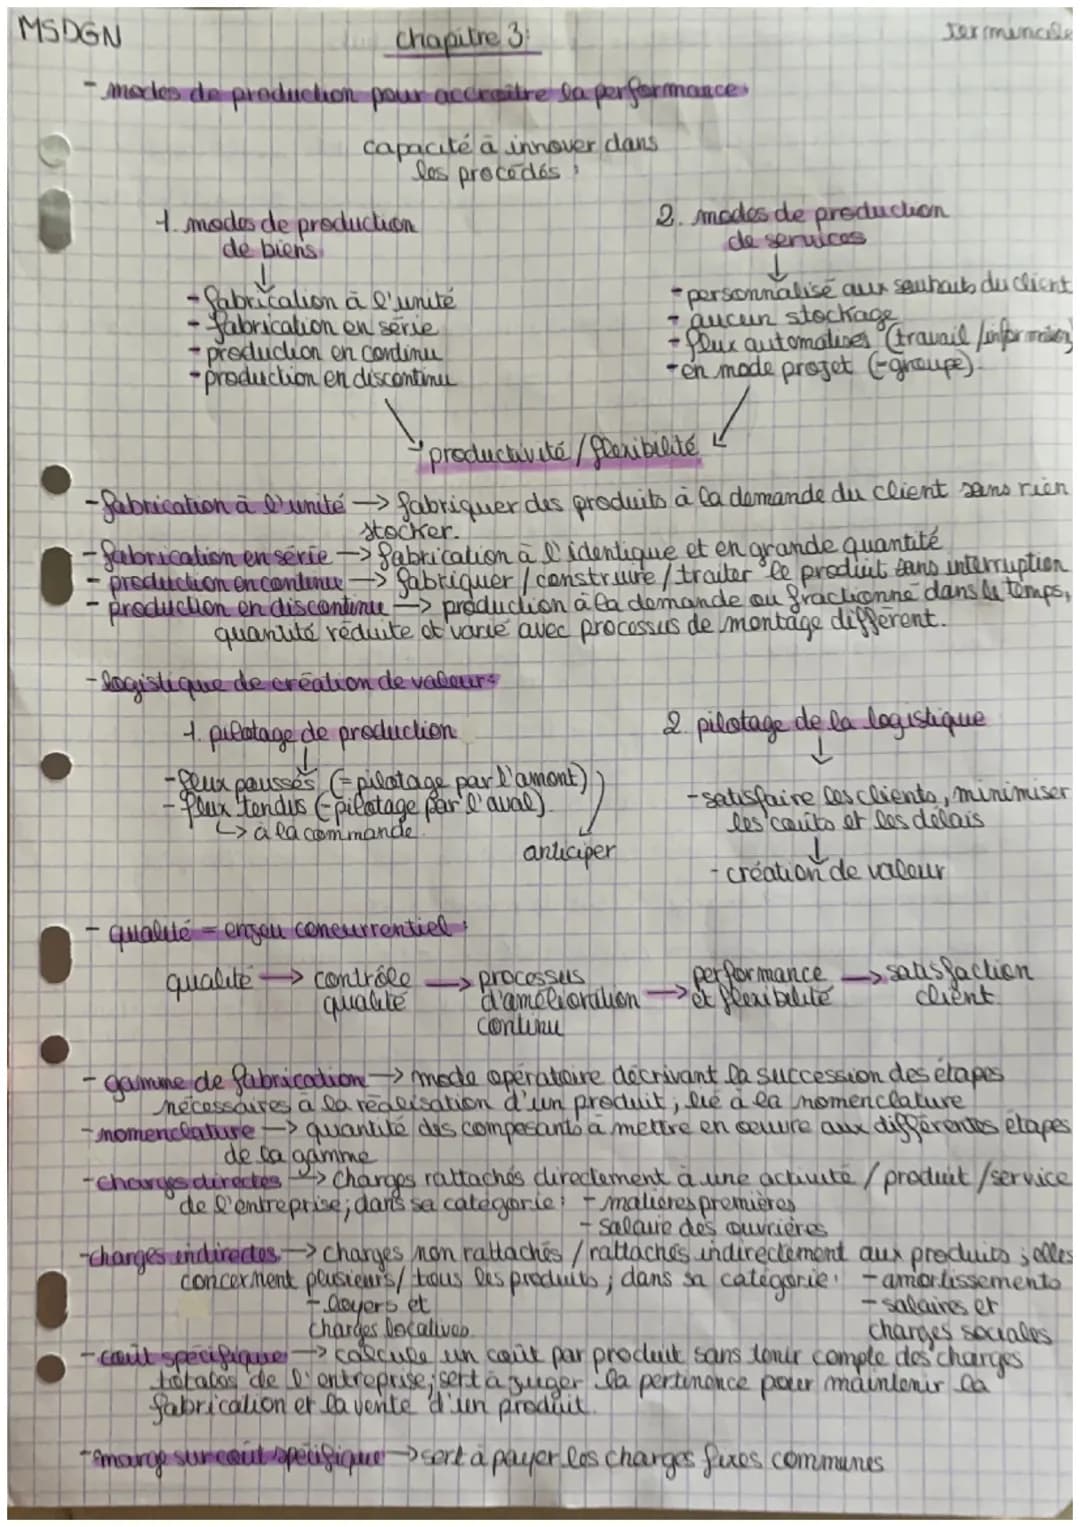 MSDGN
chapitre 3:
Terminale
- modes de production pour accroître la performance:
capacité à innover dans
les procédés :
1. modes de production
de biens
2. modes de production
de services
- fabrication à l'unité
- fabrication en série
- production en continu
- production en discontinu
- personnalisé aux souhaits du client
- aucun stockage
- flux automatisés (travail / information)
- en mode projet (=groupe)
productivité / flexibilité
- fabrication à l'unité → fabriquer des produits à la demande du client sans rien
stocker.
- fabrication en série → fabrication à l'identique et en grande quantité
- production en continue → fabriquer / construire / traiter le produit sans interruption
- production en discontinue → production à la demande ou fractionné dans le temps,
quantité réduite et varié avec processus de montage différent.
- logistique de création de valeur:
1. pilotage de production
2. pilotage de la logistique
- flux poussés (=pilotage par l'amont)
- flux tendus (=pilotage par l'aval)
↳ à la commande
anticiper
- satisfaire les clients, minimiser
les coûts et les délais
- création de valeur
- qualité = enjeu concurrentiel :
qualité → contrôle → processus → performance → satisfaction
qualité d'amélioration et flexibilité client
continu
- gamme de fabrication → mode opératoire décrivant la succession des étapes
nécessaires à la réalisation d'un produit, lié à la nomenclature
- nomenclature → quantité des composants à mettre en oeuvre aux différentes étapes
de la gamme
- charges directes → charges rattachés directement à une activité / produit / service
de l'entreprise; dans sa catégorie: - matières premières
- salaire des ouvrières
- charges indirectes → charges non rattachés / rattachés indirectement aux produits ; elles
concernent plusieurs / tous les produits ; dans sa catégorie: - amortissements
- loyers et
charges locatives
- salaires et
charges sociales
- coût spécifique → calcule un coût par produit sans tenir compte des charges
totales de l'entreprise; sert à juger la pertinence pour maintenir la
fabrication et la vente d'un produit.
- marge sur coût spécifique → sert à payer les charges fixes communes